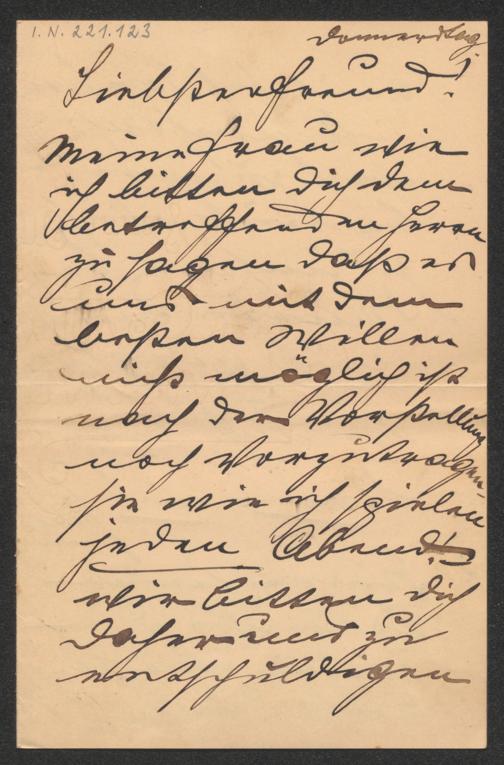 I. N. 221.123
Donnerstag!
Liebster Freund!
Meine Frau wie
ich bitten dich dem
betreffenden Herrn
zu sagen daß es
uns mit dem
besten Willen
nicht möglich ist
nach der Vorstellung
noch vorzutragen
sie wie ich spielen
jeden Abend!
wir bitten dich
daher uns zu
entschuldigen